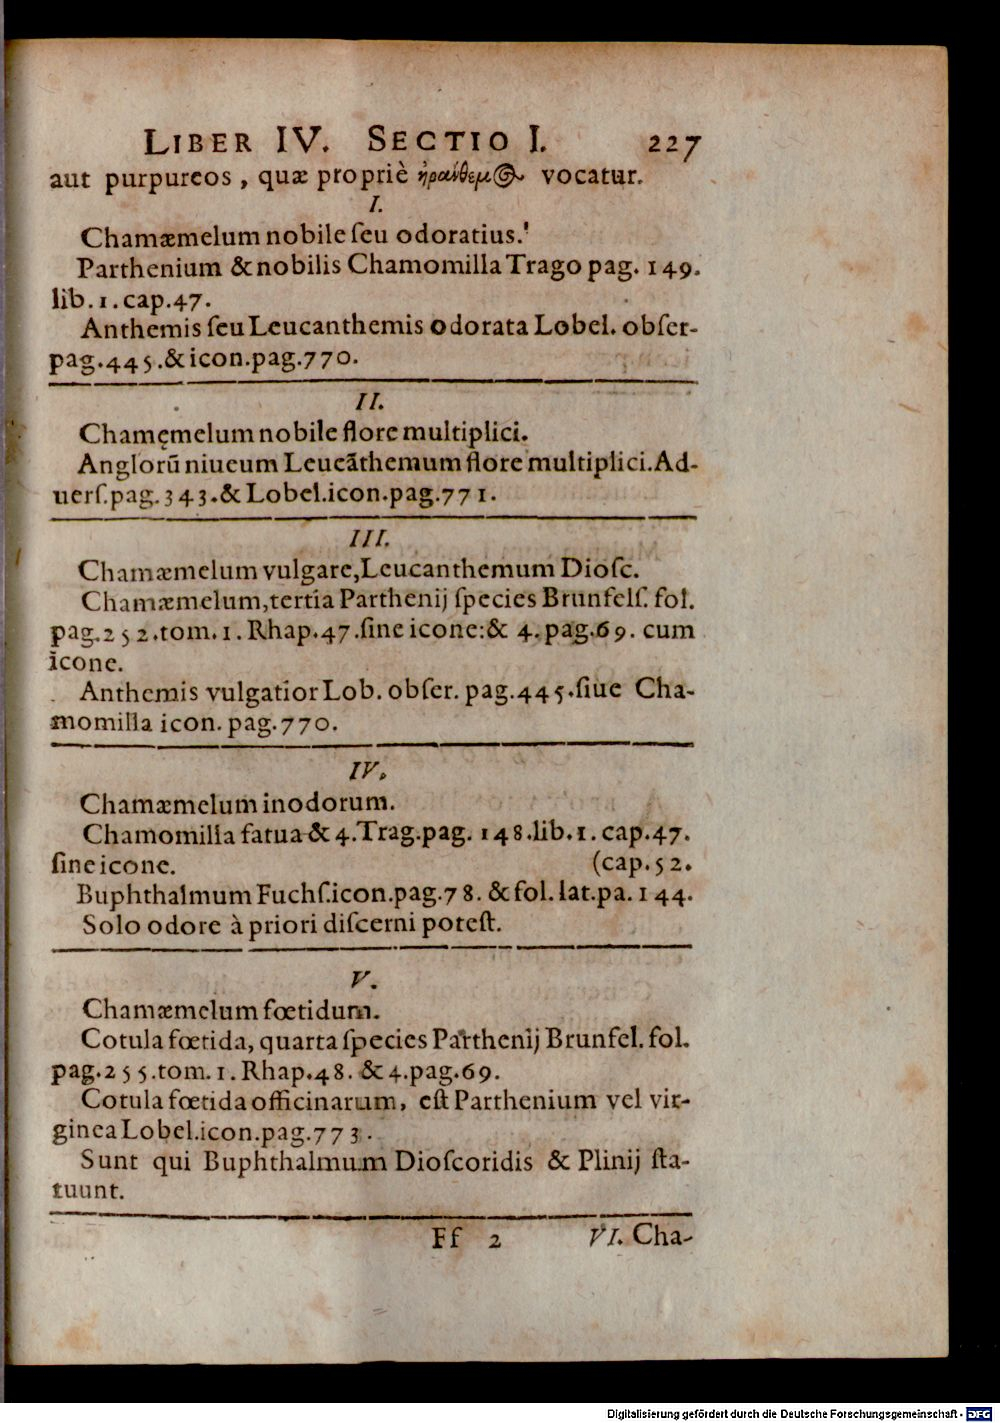 LIBER IV. SECTIO I. 227
aut purpureos, quæ propriè ἠράνθεμος vocatur.
I.
Chamæmelum nobile ſeu odoratius.
Parthenium & nobilis Chamomilla Trago pag. 149.
lib. 1. cap. 47.
Anthemis ſeu Leucanthemis odorata Lobel. obſer-
pag. 445. & icon. pag. 770.
II.
Chamęmelum nobile flore multiplici.
Anglorũ niueum Leucãthemum flore multiplici. Ad-
uerſ. pag. 343. & Lobel. icon. pag. 771.
III.
Chamæmelum vulgare, Leucanthemum Dioſc.
Chamæmelum, tertia Parthenij ſpecies Brunfelſ. fol.
pag. 252. tom. 1. Rhap. 47. ſine icone: & 4. pag. 69. cum
icone.
Anthemis vulgatior Lob. obſer. pag. 445. ſiue Cha-
momilla icon. pag. 770.
IV.
Chamæmelum inodorum.
Chamomilla fatua & 4. Trag. pag. 148. lib. 1. cap. 47.
ſine icone. (cap. 52.
Buphthalmum Fuchſ. icon. pag. 78. & fol. lat. pa. 144.
Solo odore à priori diſcerni poteſt.
V.
Chamæmelum fœtidum.
Cotula fœtida, quarta ſpecies Parthenij Brunfel. fol.
pag. 255. tom. 1. Rhap. 48. & 4. pag. 69.
Cotula fœtida officinarum, eſt Parthenium vel vir-
ginea Lobel. icon. pag. 773.
Sunt qui Buphthalmum Dioſcoridis & Plinij ſta-
tuunt.
Ff 2 VI. Cha-
Digitalisierung gefördert durch die Deutsche Forschungsgemeinschaft - DFG